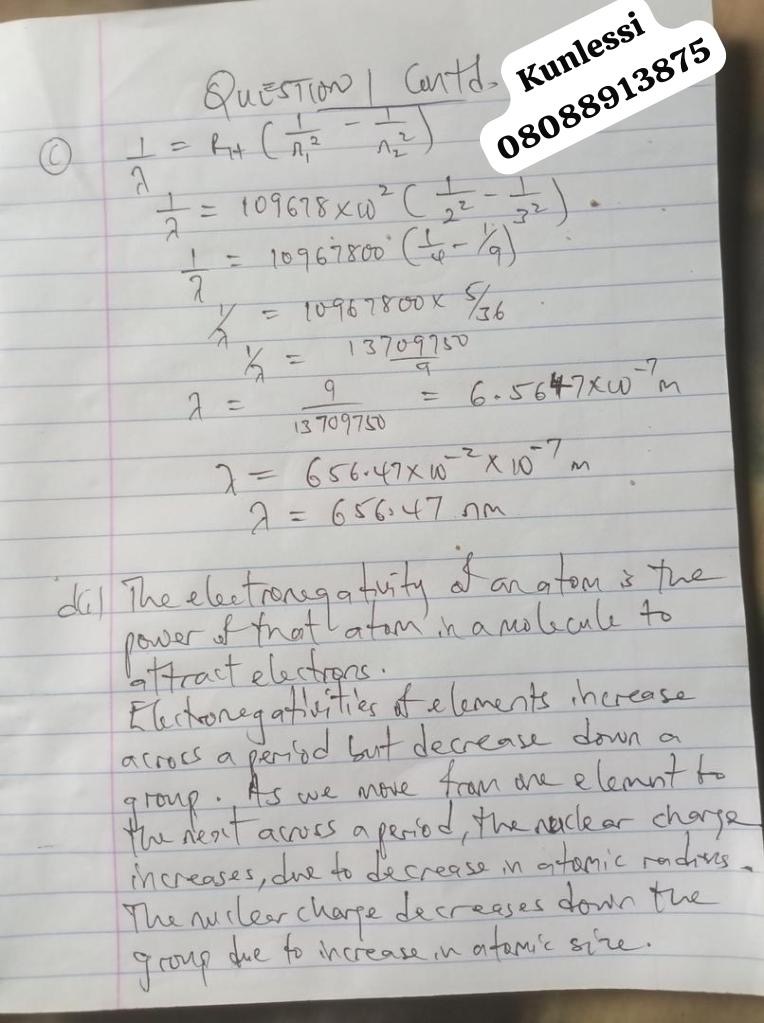 Kunlessi
08088913875
QUESTION 1 Contd.
(c) 1/λ = RH (1/n₁² - 1/n₂²)
1/λ = 109678 × 10² (1/2² - 1/3²).
1/λ = 10967800 (1/4 - 1/9)
1/λ = 10967800 × 5/36
1/λ = 13709750/9
λ = 9/13709750 = 6.5647 × 10⁻⁷ m
λ = 656.47 × 10⁻² × 10⁻⁷ m
λ = 656.47 nm
d(i) The electronegativity of an atom is the
power of that atom in a molecule to
attract electrons.
Electronegativities of elements increase
across a period but decrease down a
group. As we move from one elemnt to
the next across a period, the nuclear charge
increases, due to decrease in atomic radius.
The nuclear charge decreases down the
group due to increase in atomic size.